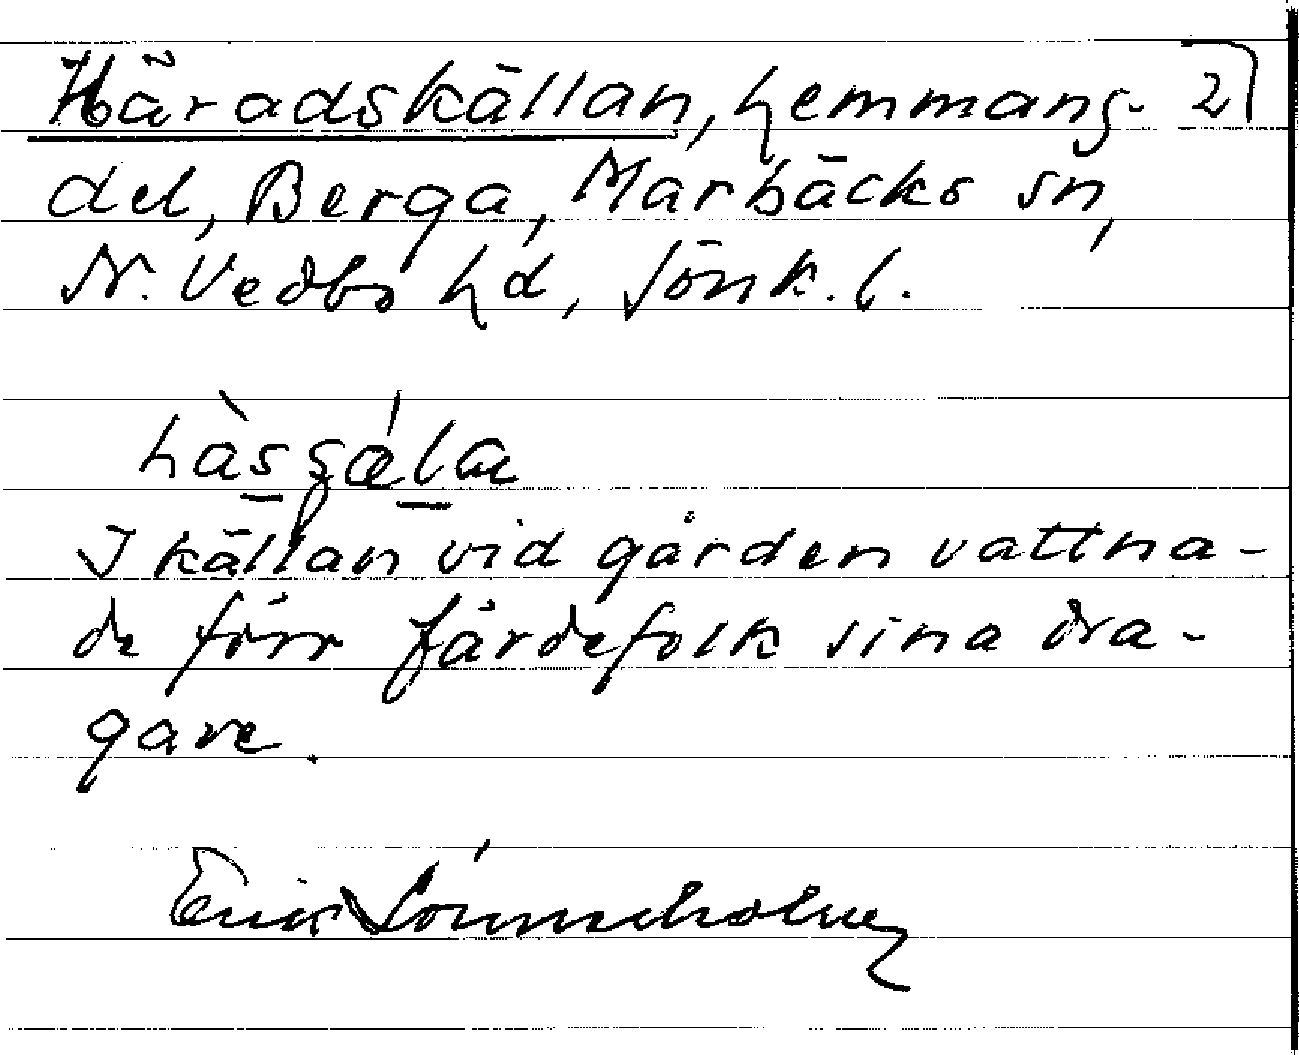 Häradskällan, hemmans- 2
del, Berga, Marbäcks sn,
N. Vedbo hd, Jönk. l.
hàsʂǽla
I källan vid gården vattna-
de förr färdefolk sina dra-
gare.
Erik